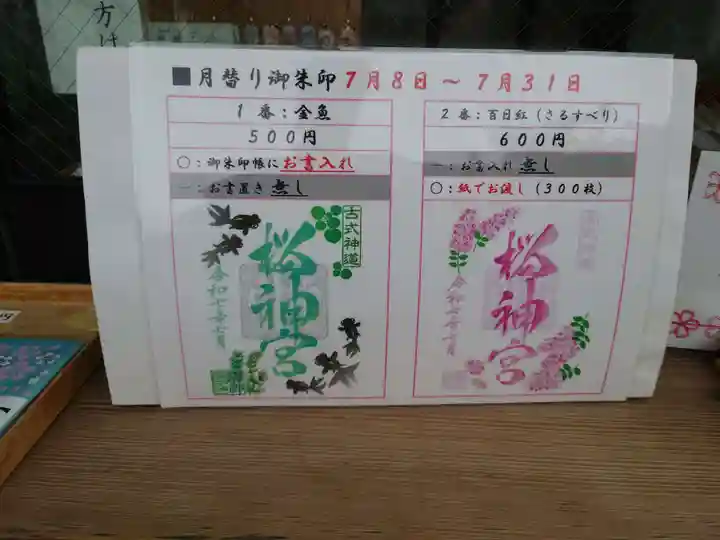 方は
■月替り御朱印7月8日～7月31日
1番：金魚
500円
○：御朱印帳にお書入れ
－：お書置き無し
古式神道
桜神宮
令和七年七月
2番：百日紅（さるすべり）
600円
－：お書入れ無し
○：紙でお渡し（300枚）
桜神宮
令和七年七月